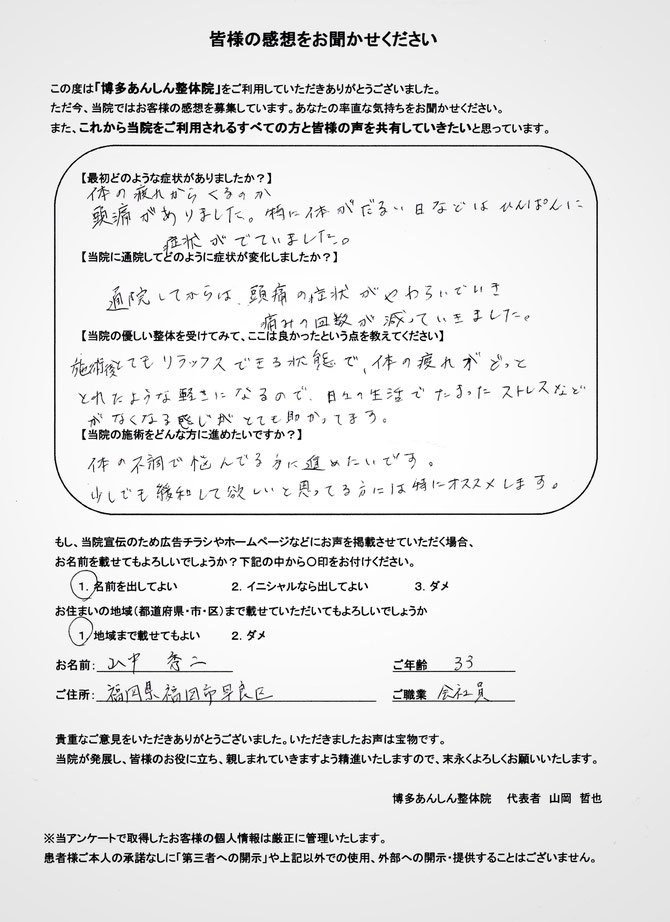 皆様の感想をお聞かせください
この度は「博多あんしん整体院」をご利用していただきありがとうございました。
ただ今、当院ではお客様の感想を募集しています。あなたの率直な気持ちをお聞かせください。
また、これから当院をご利用されるすべての方と皆様の声を共有していきたいと思っています。
【最初どのような症状がありましたか？】
体の疲れからくるのか
頭痛がありました。特に体がだるい日などはひんぱんに
症状がでていました。
【当院に通院してどのように症状が変化しましたか？】
通院してからは、頭痛の症状がやわらいでいき
痛みの回数が減っていきました。
【当院の優しい整体を受けてみて、ここは良かったという点を教えてください】
施術後とてもリラックスできる状態で、体の疲れがどっと
とれたような軽さになるので、日々の生活でたまったストレスなど
がなくなる感じがとても助かってます。
【当院の施術をどんな方に進めたいですか？】
体の不調で悩んでる方に進めたいです。
少しでも緩和して欲しいと思ってる方には特にオススメします。
もし、当院宣伝のため広告チラシやホームページなどにお声を掲載させていただく場合、
お名前を載せてもよろしいでしょうか？下記の中から〇印をお付けください。
１．名前を出してよい　２．イニシャルなら出してよい　３．ダメ
お住まいの地域（都道府県・市・区）まで載せていただいてもよろしいでしょうか
１．地域まで載せてもよい　２．ダメ
お名前： 山中 秀二　ご年齢 33
ご住所： 福岡県福岡市早良区　ご職業 会社員
貴重なご意見をいただきありがとうございました。いただきましたお声は宝物です。
当院が発展し、皆様のお役に立ち、親しまれていきますよう精進いたしますので、末永くよろしくお願いいたします。
博多あんしん整体院　代表者 山岡 哲也
※当アンケートで取得したお客様の個人情報は厳正に管理いたします。
患者様ご本人の承諾なしに「第三者への開示」や上記以外での使用、外部への開示・提供することはございません。